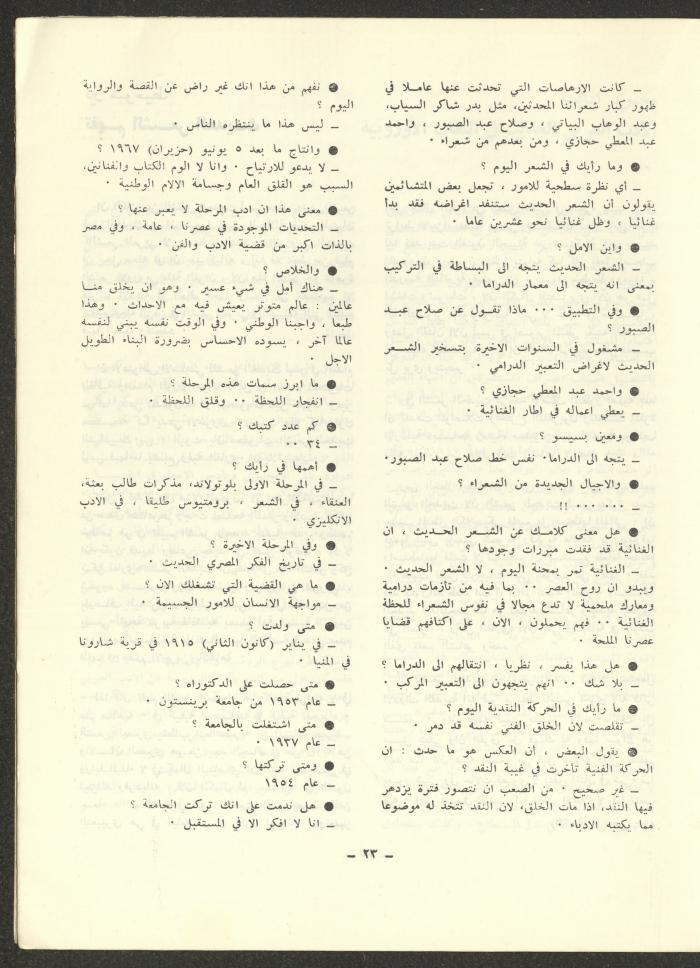 ـ كانت الارهاصات التي تحدثت عنها عاملا في
ظهور كبار شعرائنا المحدثين، مثل بدر شاكر السياب،
وعبد الوهاب البياتي ، وصلاح عبد الصبور ، واحمد
عبد المعطي حجازي ، ومن بعدهم من شعراء ·
● وما رأيك في الشعر اليوم ؟
ـ أي نظرة سطحية للامور ، تجعل بعض المتشائمين
يقولون أن الشعر الحديث ستنفد اغراضه فقد بدأ
غنائيا ، وظل غنائيا نحو عشرين عاما ·
● واين الامل ؟
ـ الشعر الحديث يتجه الى البساطة في التركيب
بمعنى انه يتجه الى معمار الدراما ·
● وفي التطبيق ··· ماذا تقول عن صلاح عبد
الصبور ؟
ـ مشغول في السنوات الاخيرة بتسخير الشعر
الحديث لاغراض التعبير الدرامي ·
● واحمد عبد المعطي حجازي ؟
ـ يعطي اعماله في اطار الغنائية ·
● ومعين بسيسو ؟
ـ يتجه الى الدراما· نفس خط صلاح عبد الصبور·
● والاجيال الجديدة من الشعراء ؟
ـ ··· ··· !!
● هل معنى كلامك عن الشعر الحديث ، ان
الغنائية قد فقدت مبررات وجودها ؟
ـ الغنائية تمر بمحنة اليوم ، لا الشعر الحديث ·
ويبدو ان روح العصر ·· بما فيه من تازمات درامية
ومعارك ملحمية لا تدع مجالا في نفوس الشعراء للحظة
الغنائية ·· فهم يحملون ، الان ، على اكتافهم قضايا
عصرنا الملحة ·
● هل هذا يفسر ، نظريا ، انتقالهم الى الدراما ؟
ـ بلا شك ·· انهم يتجهون الى التعبير المركب ·
● ما رأيك في الحركة النقدية اليوم ؟
ـ تقلصت لان الخلق الفني نفسه قد دمر ·
● يقول البعض ، أن العكس هو ما حدث : ان
الحركة الفنية تأخرت في غيبة النقد ؟
ـ غير صحيح · من الصعب ان نتصور فترة يزدهر
فيها النقد، اذا مات الخلق، لان النقد تتخذ له موضوعا
مما يكتبه الادباء ·
● نفهم من هذا انك غير راض عن القصة والرواية
اليوم ؟
ـ ليس هذا ما ينتظره الناس ·
● وانتاج ما بعد ٥ يونيو (حزيران) ١٩٦٧ ؟
ـ لا يدعو للارتياح · وانا لا الوم الكتاب والفنانين،
السبب هو القلق العام وجسامة الالام الوطنية ·
● معنى هذا ان ادب المرحلة لا يعبر عنها ؟
ـ التحديات الموجودة في عصرنا ، عامة ، وفي مصر
بالذات اكبر من قضية الادب والفن ·
● والخلاص ؟
ـ هناك أمل في شيء عسير · وهو ان يخلق منا
عالمين : عالم متوتر يعيش فيه مع الاحداث · وهذا
طبعا ، واجبنا الوطني · وفي الوقت نفسه يبني لنفسه
عالما آخر ، يسوده الاحساس بضرورة البناء الطويل
الاجل ·
● ما ابرز سمات هذه المرحلة ؟
ـ انفجار اللحظة ·· وقلق اللحظة ·
● كم عدد كتبك ؟
ـ ٣٤ ··
● أهمها في رأيك ؟
ـ في المرحلة الاولى بلوتولاند، مذكرات طالب بعثة،
العنقاء ، في الشعر ، برومثيوس طليقا ، في الادب
الانكليزي ·
● وفي المرحلة الاخيرة ؟
ـ في تاريخ الفكر المصري الحديث ·
● ما هي القضية التي تشغلك الان ؟
ـ مواجهة الانسان للامور الجسيمة ·
● متى ولدت ؟
ـ في يناير (كانون الثاني) ١٩١٥ في قرية شارونا
في المنيا ·
● متى حصلت على الدكتوراه ؟
ـ عام ١٩٥٣ من جامعة برينستون ·
● متى اشتغلت بالجامعة ؟
ـ عام ١٩٣٧ ·
● ومتى تركتها ؟
ـ عام ١٩٥٤
● هل ندمت على انك تركت الجامعة ؟
ـ انا لا افكر الا في المستقبل ·
ـ ٢٣ ـ